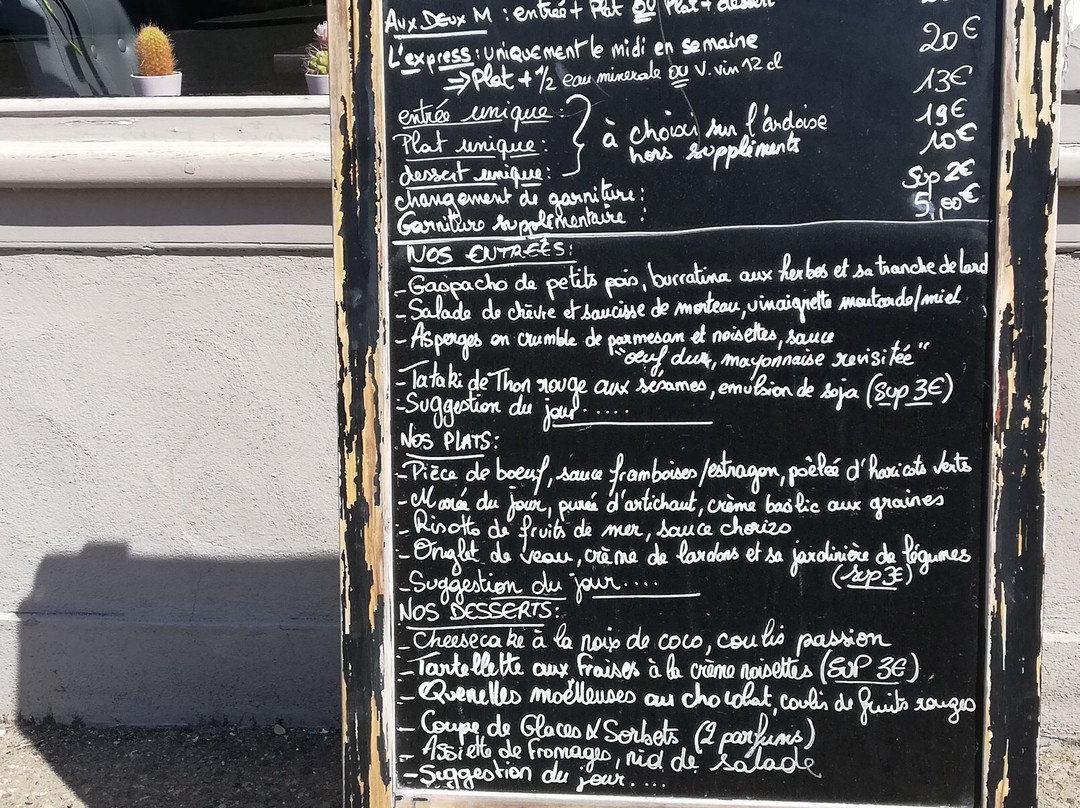 Aux Deux M : entrée + Plat OU Plat + dessert
L'express : uniquement le midi en semaine 20€
=> Plat + 1/2 eau minerale OU V. vin 12 cl
entrée unique : 13€
Plat unique : 19€
à choisir sur l'ardoise
hors suppléments
dessert unique : 10€
changement de garniture : Sup 2€
Garniture supplémentaire : 5,00€
NOS ENTRÉES :
- Gaspacho de petits pois, burratina aux herbes et sa tranche de lard
- Salade de chèvre et saucisse de morteau, vinaigrette moutarde/miel
- Asperges en crumble de parmesan et noisettes, sauce
"oeuf dur, mayonnaise revisitée"
- Tataki de Thon rouge aux sésames, emulsion de soja (Sup 3€)
- Suggestion du jour.....
NOS PLATS :
- Pièce de boeuf, sauce framboises/estragon, poêlée d'haricots verts
- Marée du jour, purée d'artichaut, crème basilic aux graines
- Risotto de fruits de mer, sauce chorizo
- Onglet de veau, crème de lardons et sa jardinière de légumes
(sup 3€)
- Suggestion du jour....
NOS DESSERTS :
- Cheesecake à la noix de coco, coulis passion
- Tartellette aux fraises à la crème noisettes (SUP 3€)
- Quenelles moëlleuses au chocolat, coulis de fruits rouges
- Coupe de Glaces & Sorbets (2 parfums)
- Assiette de fromages, nid de salade
- Suggestion du jour....